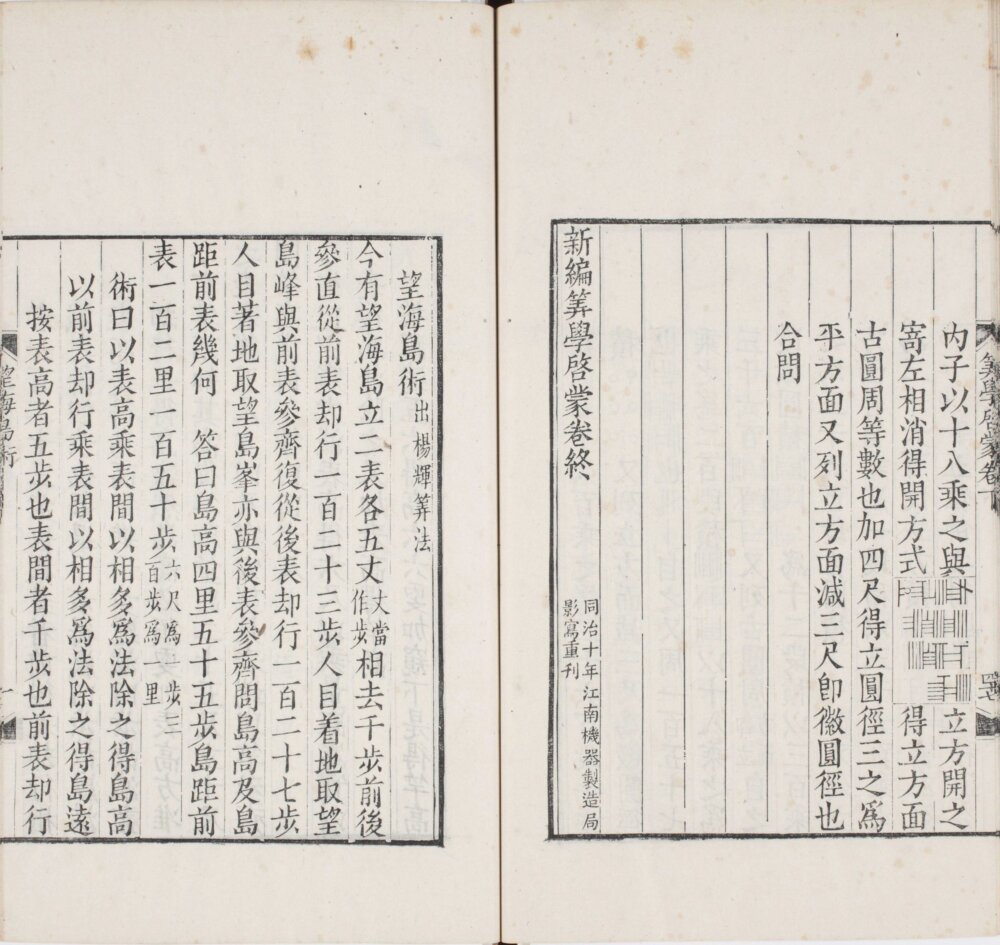 算學啓蒙卷下
內子以十八乘之與
立方開之
寄左相消得開方式
得立方面
古圓周等數也加四尺得立圓徑三之爲
平方面又列立方面減三尺卽徽圓徑也
合問
新編筭學啓蒙卷終
同治十年江南機器製造局
影寫重刊
望海島術出楊輝筭法
今有望海島立二表各五丈丈當作步相去千步前後
參直從前表却行一百二十三步人目着地取望
島峰與前表參齊復從後表却行一百二十七步
人目著地取望島峯亦與後表參齊問島高及島
距前表幾何 答曰島高四里五十五步島距前
表一百二里一百五十步六尺爲一步三百步爲一里
術曰以表高乘表間以相多爲法除之得島高
以前表却行乘表間以相多爲法除之得島遠
按表高者五步也表間者千步也前表却行
望海島術
一